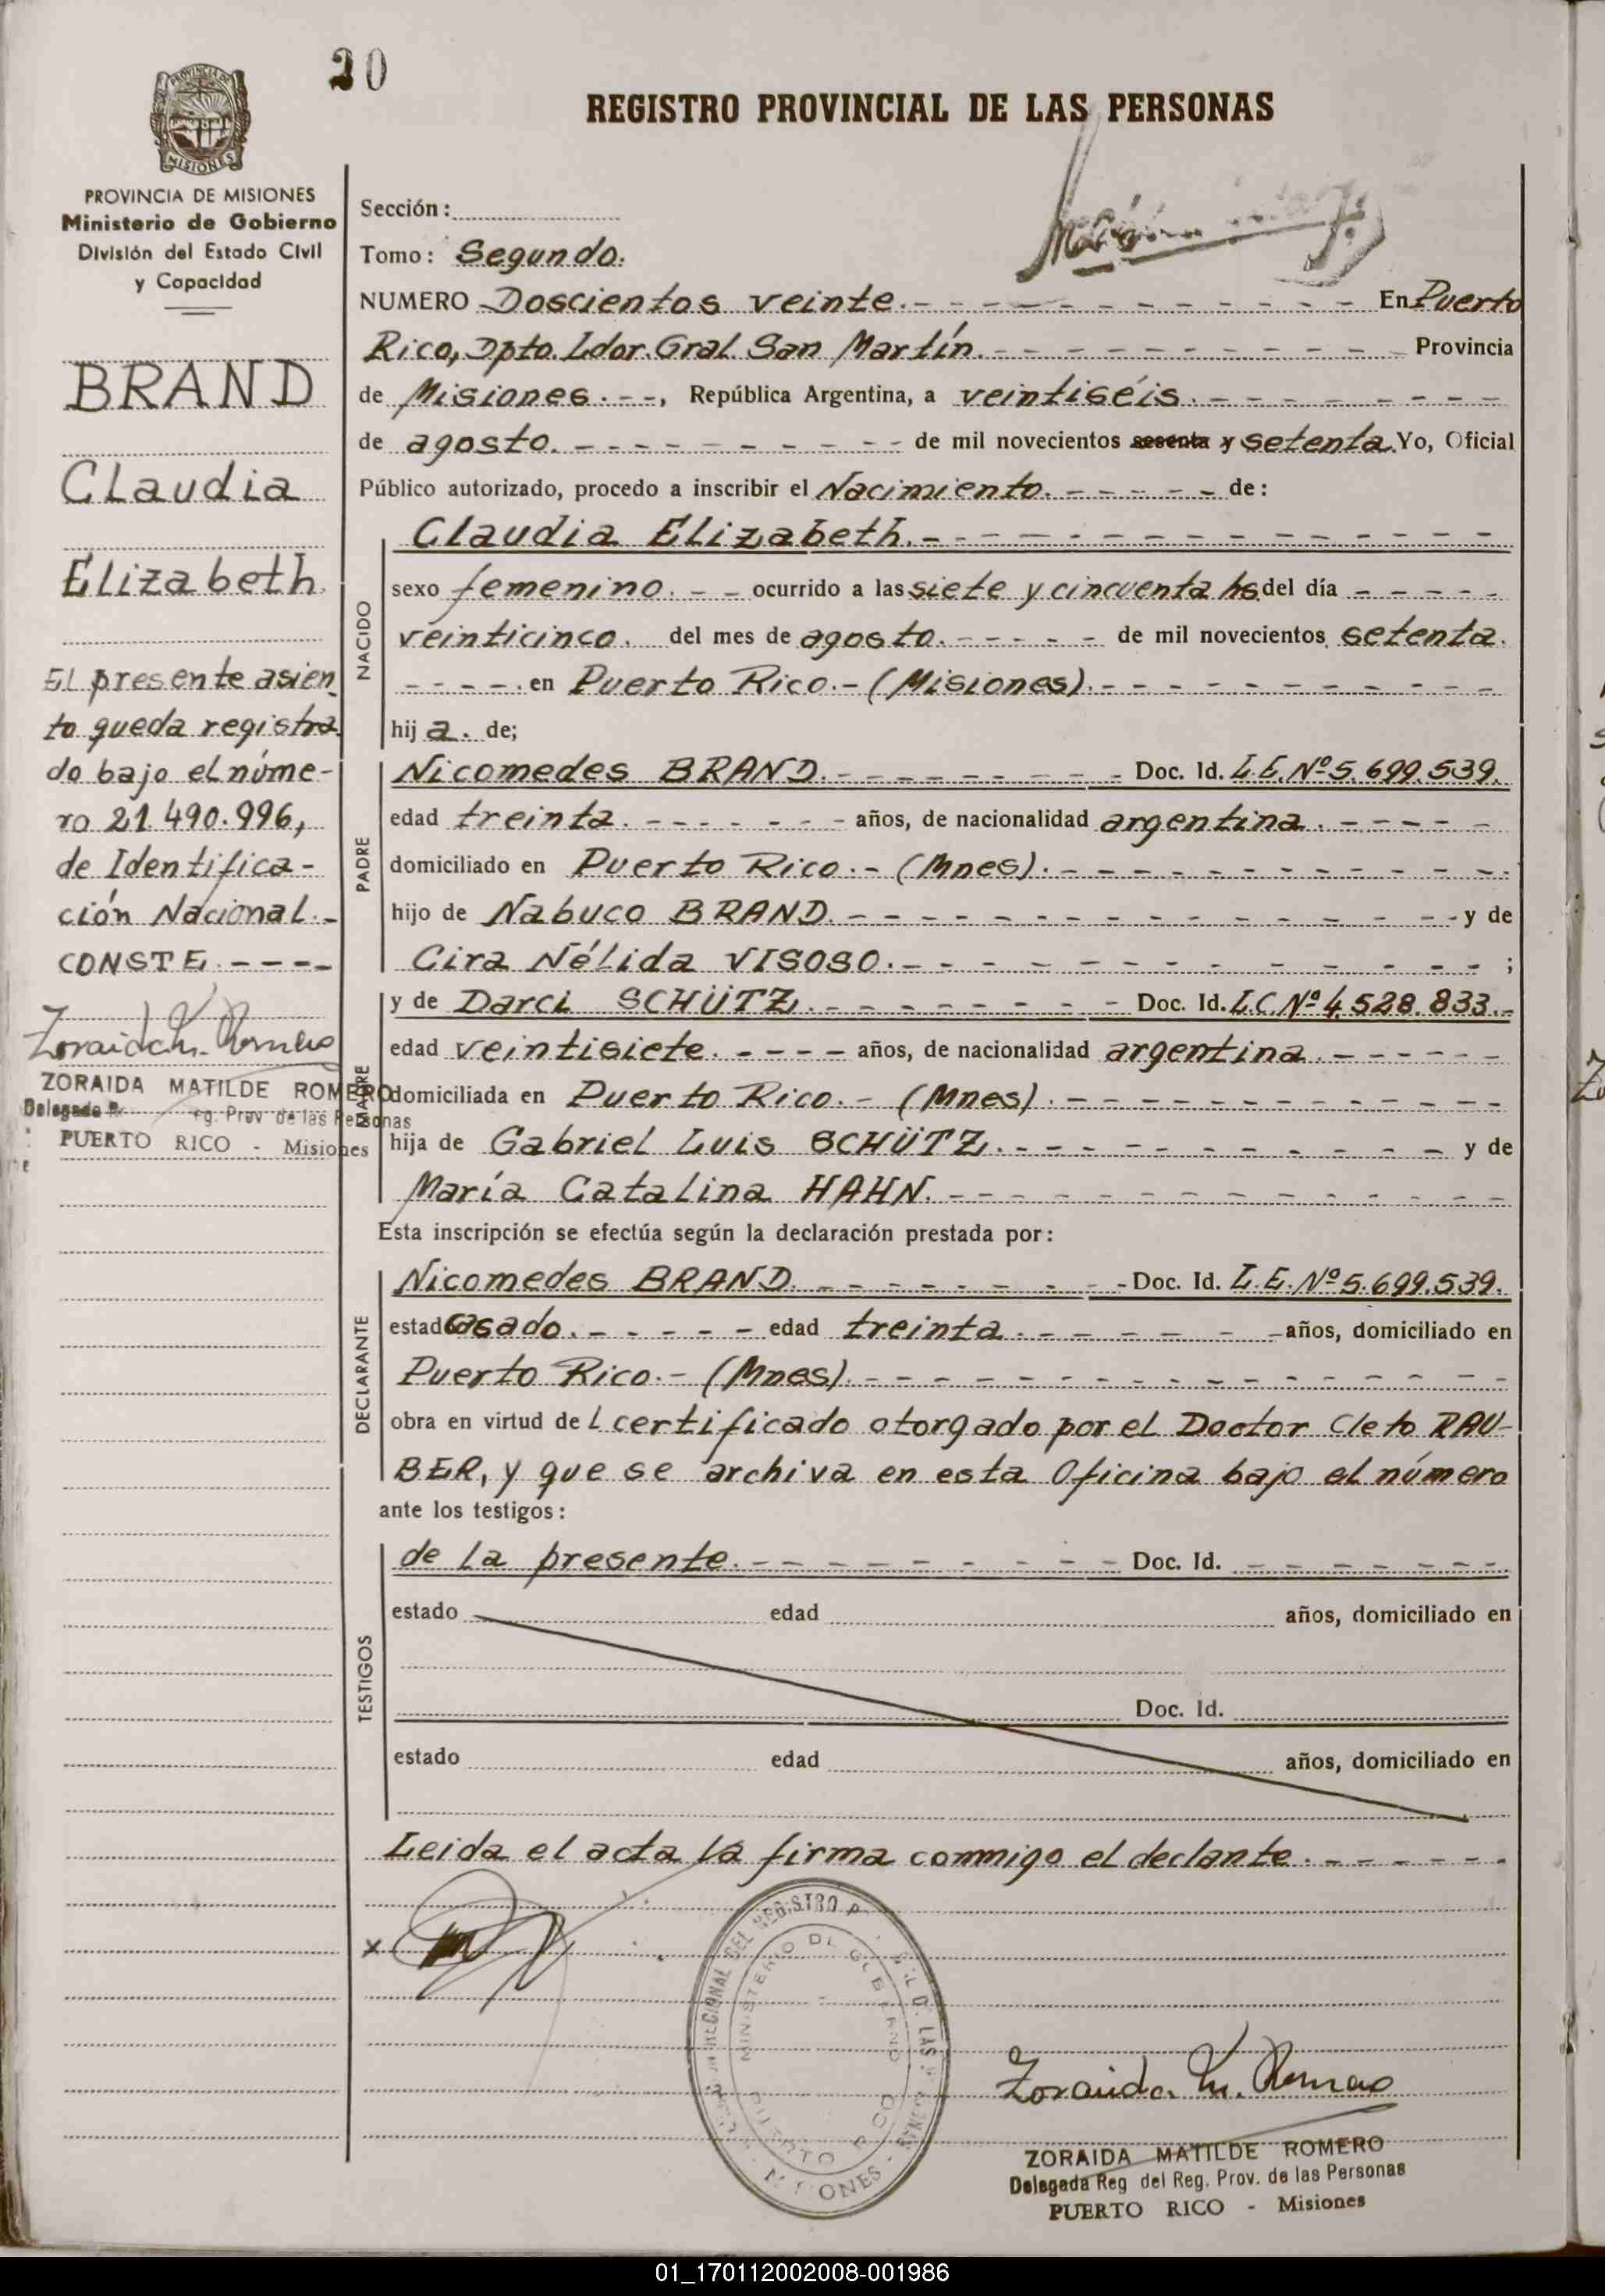 20
REGISTRO PROVINCIAL DE LAS PERSONAS
PROVINCIA DE MISIONES
Ministerio de Gobierno
División del Estado Civil
y Capacidad
BRAND
Claudia
Elizabeth.
El presente asien
to queda registra
do bajo el núme-
ro 21.490.996,
de Identifica-
ción Nacional.-
CONSTE.----
Zoraida M. Romero
ZORAIDA MATILDE ROMERO
Delegada Reg. Prov de las Personas
PUERTO RICO - Misiones
Sección:
Tomo: Segundo.
NUMERO Doscientos veinte.- En Puerto
Rico, Dpto. Ldor. Gral. San Martín.- Provincia
de Misiones.--, República Argentina, a veintiséis.-
de agosto.- de mil novecientos sesenta y setenta. Yo, Oficial
Público autorizado, procedo a inscribir el Nacimiento.- de:
NACIDO
Claudia Elizabeth.-
sexo femenino.-- ocurrido a las siete y cincuenta hs del día
veinticinco. del mes de agosto.- de mil novecientos setenta.
en Puerto Rico.- (Misiones).-
hija. de;
PADRE
Nicomedes BRAND.- Doc. Id. L.E. Nº 5.699.539.
edad treinta.- años, de nacionalidad argentina.-
domiciliado en Puerto Rico.- (Mnes).-
hijo de Nabuco BRAND.- y de
Cira Nélida VISOSO.- ;
MADRE
y de Darci SCHÜTZ.- Doc. Id. L.C. Nº 4.528.833.-
edad veintisiete.- años, de nacionalidad argentina.-
domiciliada en Puerto Rico.- (Mnes).-
hija de Gabriel Luis SCHÜTZ.- y de
María Catalina HAHN.-
Esta inscripción se efectúa según la declaración prestada por:
DECLARANTE
Nicomedes BRAND.- Doc. Id. L.E. Nº 5.699.539.
estado casado.- edad treinta.- años, domiciliado en
Puerto Rico.- (Mnes).-
obra en virtud del certificado otorgado por el Doctor Cleto RAU-
BER, y que se archiva en esta Oficina bajo el número
ante los testigos:
TESTIGOS
de la presente.- Doc. Id.
estado edad años, domiciliado en
Doc. Id.
estado edad años, domiciliado en
Leida el acta la firma conmigo el declante.-
x
MINISTERIO DE GOBIERNO
PUERTO RICO
MISIONES
Zoraida M. Romero
ZORAIDA MATILDE ROMERO
Delegada Reg del Reg. Prov. de las Personas
PUERTO RICO - Misiones
01_170112002008-001986